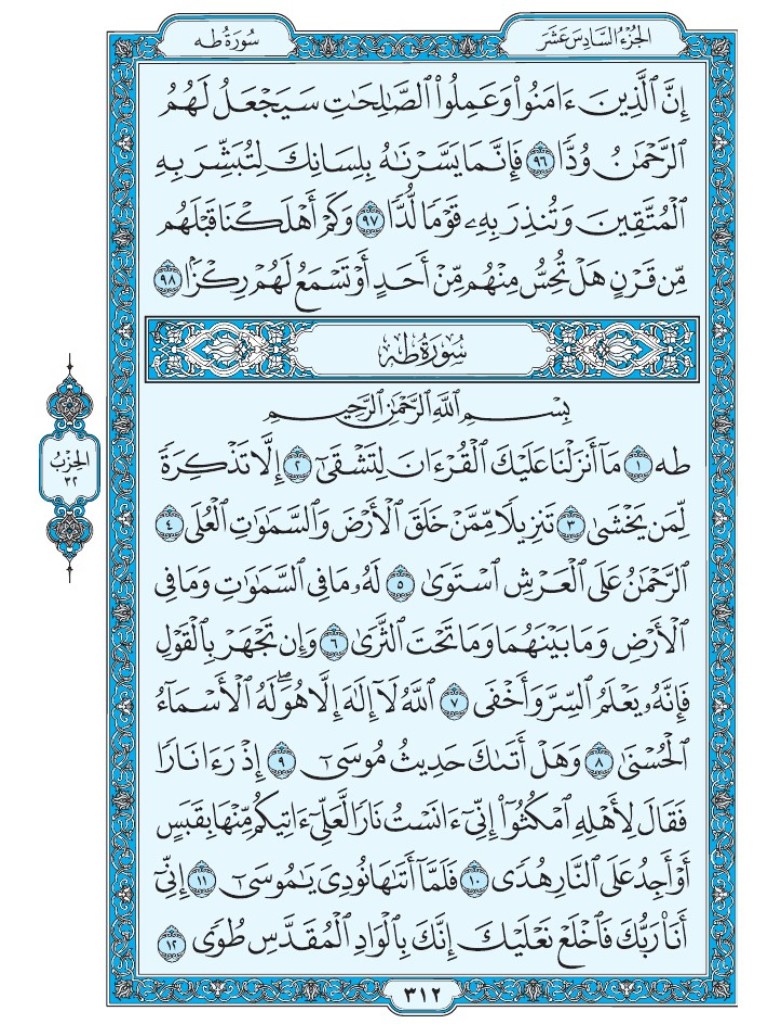 الجزء السادس عشر
سورة طه
إِنَّ ٱلَّذِينَ ءَامَنُوا۟ وَعَمِلُوا۟ ٱلصَّٰلِحَٰتِ سَيَجْعَلُ لَهُمُ
ٱلرَّحْمَٰنُ وُدًّا ٩٦ فَإِنَّمَا يَسَّرْنَٰهُ بِلِسَانِكَ لِتُبَشِّرَ بِهِ
ٱلْمُتَّقِينَ وَتُنذِرَ بِهِۦ قَوْمًا لُّدًّا ٩٧ وَكَمْ أَهْلَكْنَا قَبْلَهُم
مِّن قَرْنٍ هَلْ تُحِسُّ مِنْهُم مِّنْ أَحَدٍ أَوْ تَسْمَعُ لَهُمْ رِكْزًۢا ٩٨
سُورَةُ طه
بِسْمِ ٱللَّهِ ٱلرَّحْمَٰنِ ٱلرَّحِيمِ
طه ١ مَآ أَنزَلْنَا عَلَيْكَ ٱلْقُرْءَانَ لِتَشْقَىٰٓ ٢ إِلَّا تَذْكِرَةً
لِّمَن يَخْشَىٰ ٣ تَنزِيلًا مِّمَّنْ خَلَقَ ٱلْأَرْضَ وَٱلسَّمَٰوَٰتِ ٱلْعُلَى ٤
ٱلرَّحْمَٰنُ عَلَى ٱلْعَرْشِ ٱسْتَوَىٰ ٥ لَهُۥ مَا فِى ٱلسَّمَٰوَٰتِ وَمَا فِى
ٱلْأَرْضِ وَمَا بَيْنَهُمَا وَمَا تَحْتَ ٱلثَّرَىٰ ٦ وَإِن تَجْهَرْ بِٱلْقَوْلِ
فَإِنَّهُۥ يَعْلَمُ ٱلسِّرَّ وَأَخْفَى ٧ ٱللَّهُ لَآ إِلَٰهَ إِلَّا هُوَ ۖ لَهُ ٱلْأَسْمَآءُ
ٱلْحُسْنَىٰ ٨ وَهَلْ أَتَىٰكَ حَدِيثُ مُوسَىٰٓ ٩ إِذْ رَءَا نَارًا
فَقَالَ لِأَهْلِهِ ٱمْكُثُوٓا۟ إِنِّىٓ ءَانَسْتُ نَارًا لَّعَلِّىٓ ءَاتِيكُم مِّنْهَا بِقَبَسٍ
أَوْ أَجِدُ عَلَى ٱلنَّارِ هُدًى ١٠ فَلَمَّآ أَتَىٰهَا نُودِىَ يَٰمُوسَىٰٓ ١١ إِنِّىٓ
أَنَا۠ رَبُّكَ فَٱخْلَعْ نَعْلَيْكَ إِنَّكَ بِٱلْوَادِ ٱلْمُقَدَّسِ طُوًى ١٢
الحزب
٣٢
٣١٢